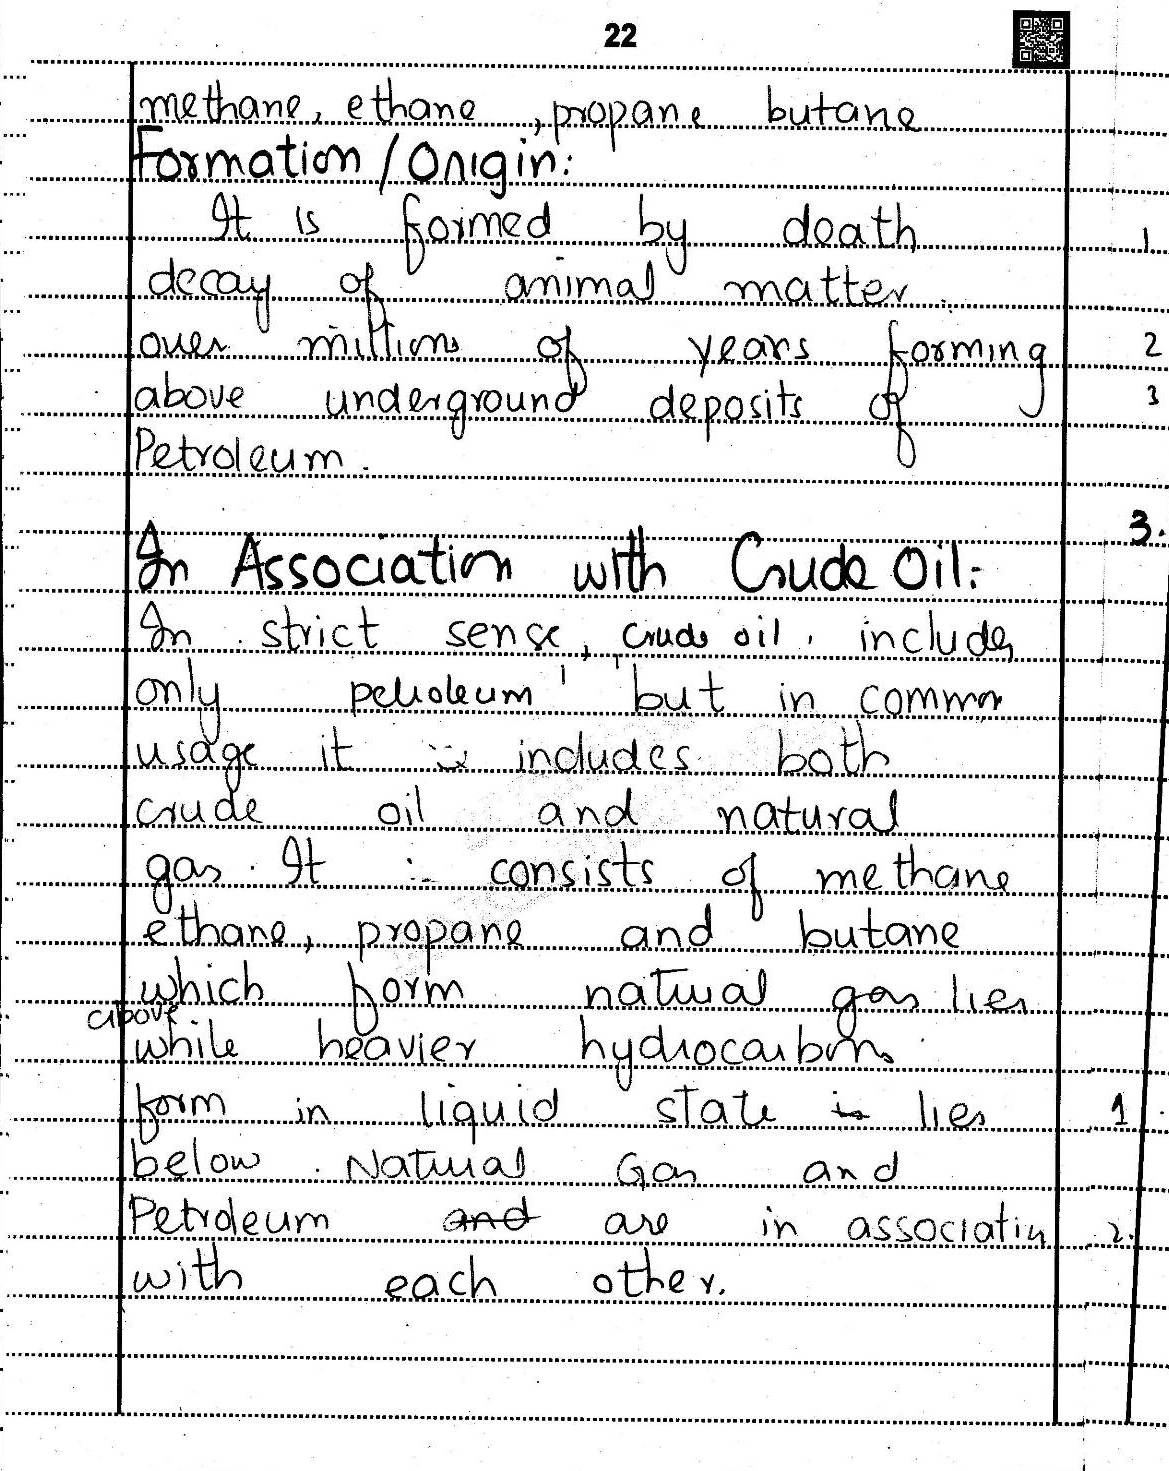 22
methane, ethane, propane butane
Formation / Origin:
It is formed by death
decay of animal matter
over millions of years forming 2
above underground deposits of 3
Petroleum.
3.
In Association with Crude Oil:
In strict sense, crude oil includes
only petroleum but in common
usage it includes both
crude oil and natural
gas. It consists of methane
ethane, propane and butane
which form natural gas lies
above
while heavier hydrocarbons
form in liquid state is lies 1
below. Natural Gas and
Petroleum and are in association 2.
with each other.